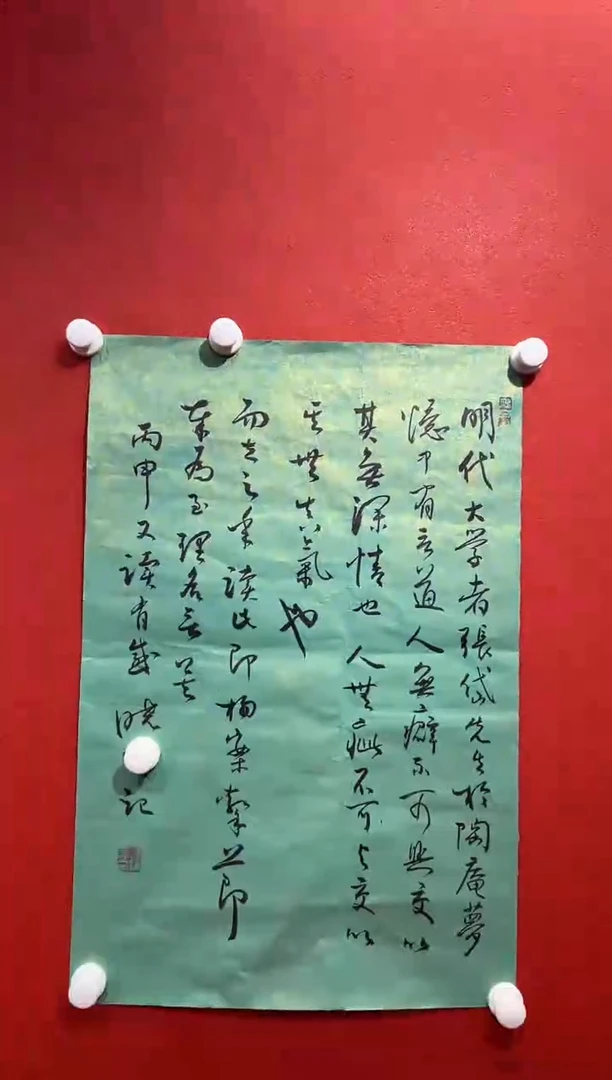 明代大学者張岱先生於陶庵夢
憶中有言道人無癖不可與交以
其無深情也人無疵不可与交以
其無真氣也
而立之年读此即拍案 即
奉為至理名言
丙申又讀有感 晓 記